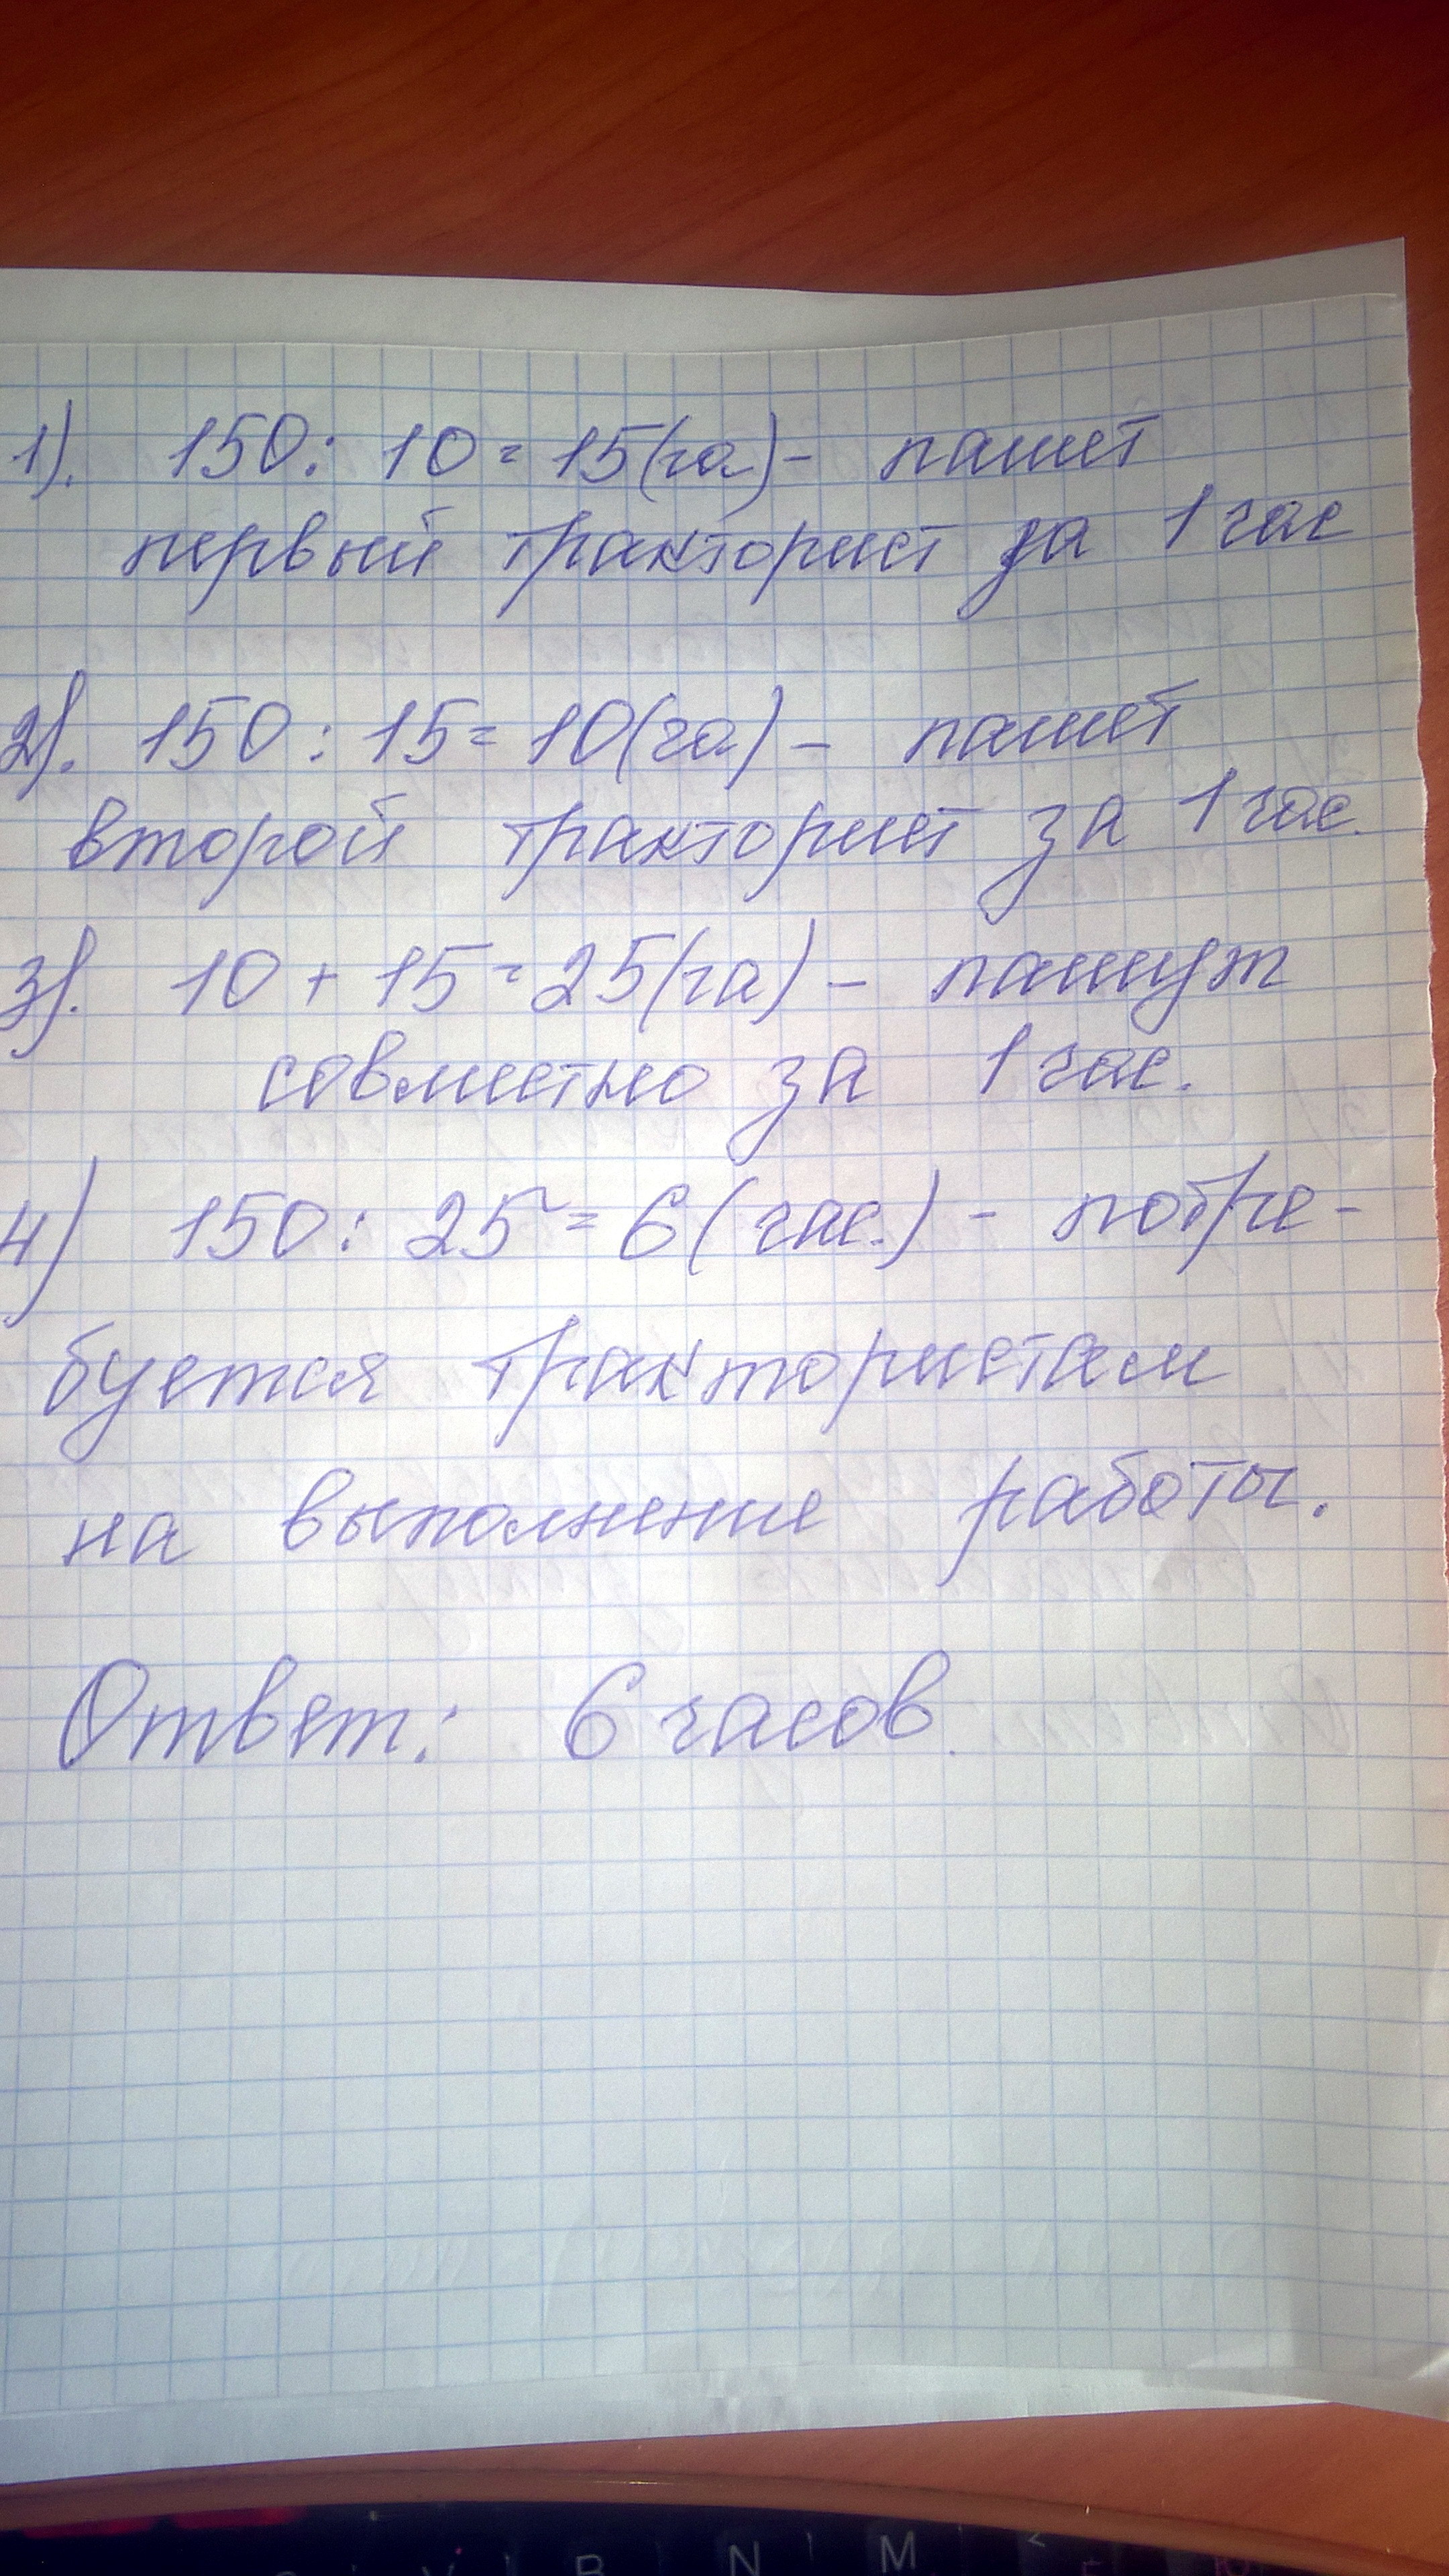 1). 150 : 10 = 15 (га) - пашет
первый тракторист за 1 час
2). 150 : 15 = 10 (га) - пашет
второй тракторист за 1 час.
3). 10 + 15 = 25 (га) - пашут
совместно за 1 час.
4) 150 : 25 = 6 (час.) - потре-
буется трактористам
на выполнение работы.
Ответ: 6 часов.
V B N M